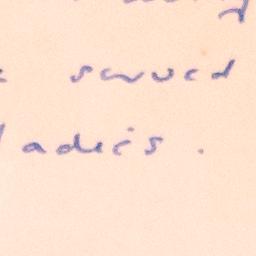 served
ladies.